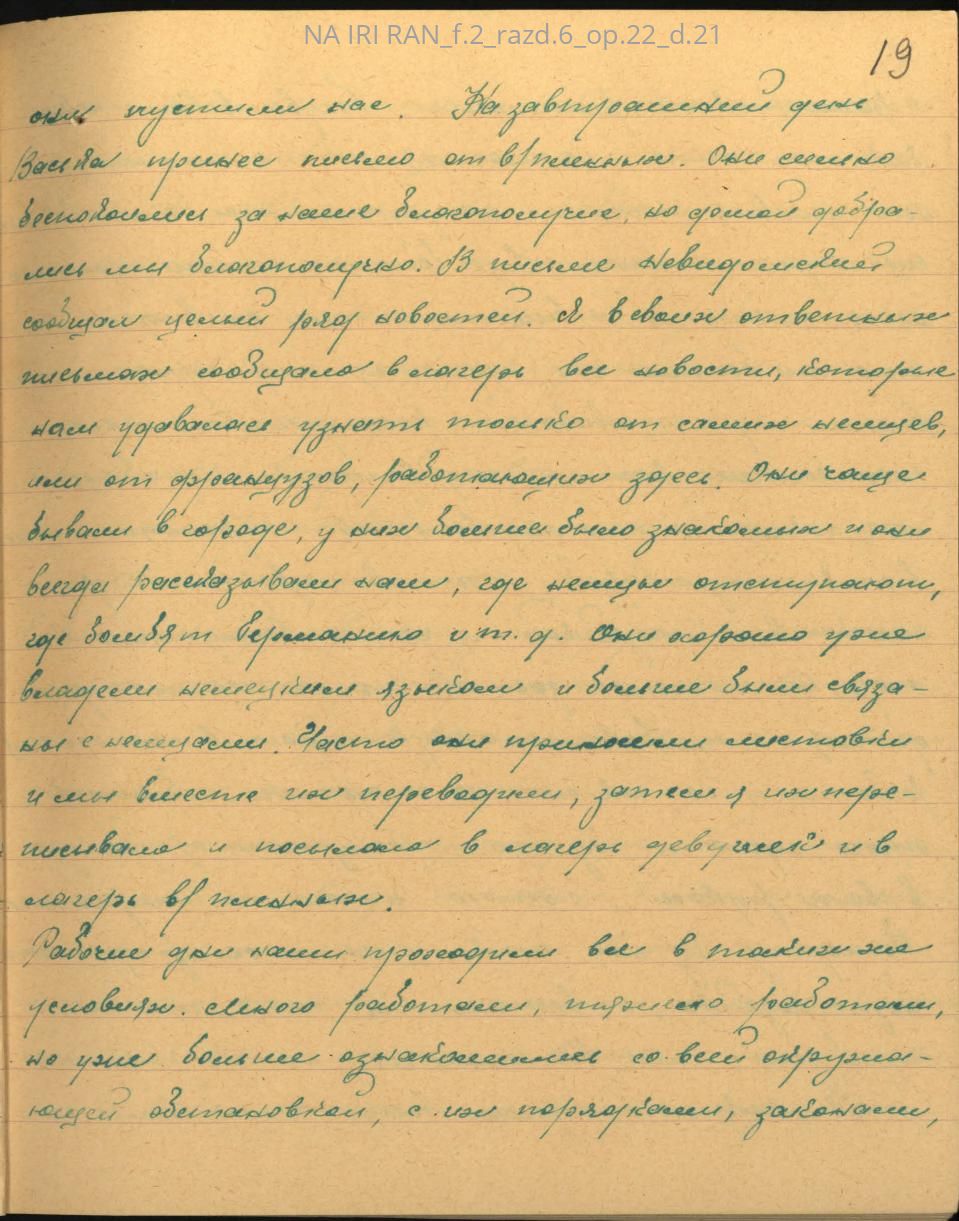 NA IRI RAN_f.2_razd.6_op.22_d.21
19
они пустили нас. На завтрашний день
Васька принес письмо от в/пленных. Они сильно
беспокоились за наше благополучие, но домой добра-
лись мы благополучно. В письме Невидомский
сообщал целый ряд новостей. Я в своих ответных
письмах сообщала в лагерь все новости, которые
нам удавалось узнать только от самих немцев,
или от французов, работающих здесь. Они чаще
бывали в городе, у них больше было знакомых и они
всегда рассказывали нам, где немцы отступают,
где бомбят Германию и т. д. Они хорошо уже
владели немецким языком и больше были связа-
ны с немцами. Часто они приносили листовки
и мы вместе их переводили, затем я их пере-
писывала и посылала в лагерь девушек и в
лагерь в/пленных.
Рабочие дни наши проходили все в таких же
условиях. Много работали, тяжело работали,
но уже больше ознакомились со всей окружа-
ющей обстановкой, с их порядками, законами,